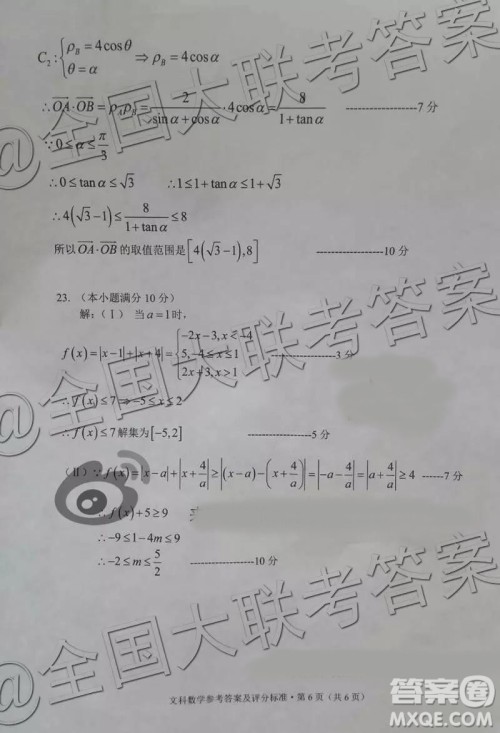 C₂:{ρ_B=4cosθ
θ=α ⇒ρ_B=4cosα
∴OA·OB=ρ_Aρ_B=2/(sinα+cosα)·4cosα=8/(1+tanα) ----------------7分
∵0≤α≤π/3
∴0≤tanα≤√3 ∴1≤1+tanα≤1+√3
∴4(√3-1)≤8/(1+tanα)≤8
所以OA·OB的取值范围是[4(√3-1),8] ----------------10分
23. (本小题满分10分)
解:(Ⅰ) 当a=1时,
f(x)=|x-1|+|x+4|={-2x-3,x<-4
5,-4≤x≤1
2x+3,x>1 ----------------3分
∴f(x)≤7⇒-5≤x≤2
∴f(x)≤7解集为[-5,2] ------------5分
(Ⅱ)∵f(x)=|x-a|+|x+4/a|≥|(x-a)-(x+4/a)|=|-a-4/a|=|a+4/a|≥4 ------7分
∴f(x)+5≥9
∴-9≤1-4m≤9
∴-2≤m≤5/2 ----------------10分
文科数学参考答案及评分标准·第6页(共6页)
@全国大联考答案
@全国大联考答案
@全国大联考答案
答案圈
MXQE.COM